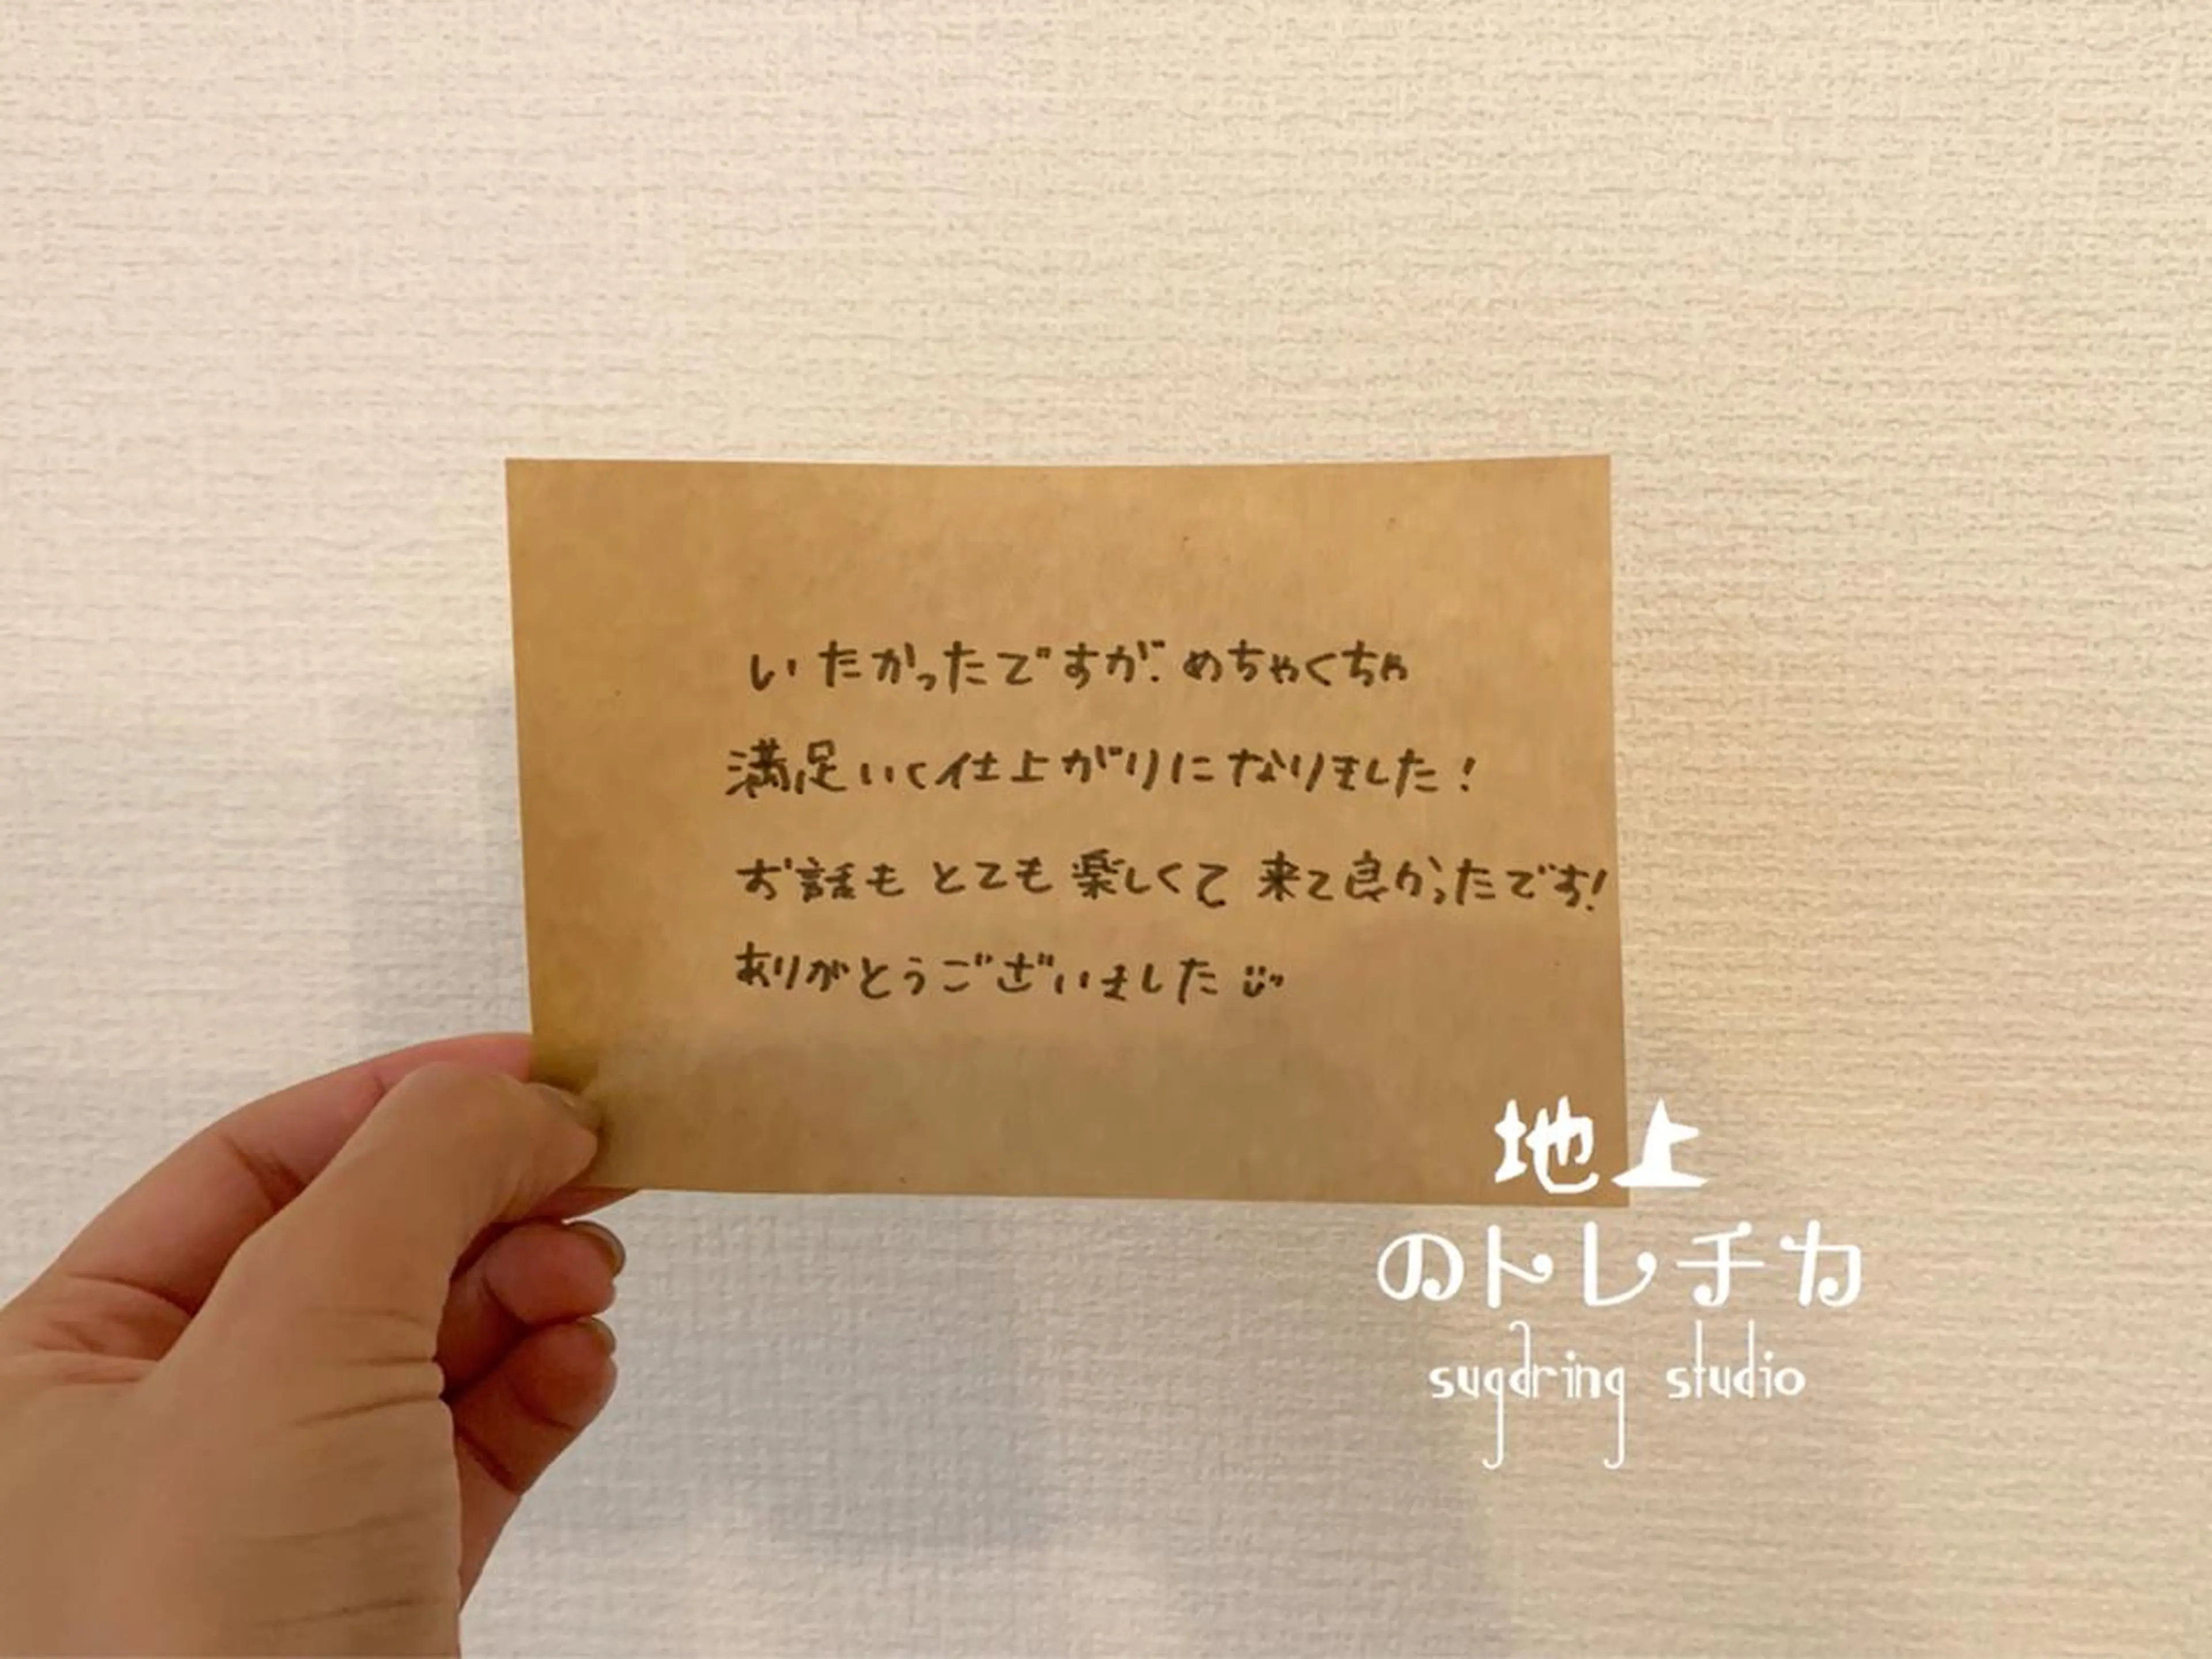 いたかったですが、めちゃくちゃ
満足いく仕上がりになりました！
お話も とても 楽しくて 来て良かったです！
ありがとうございました
地上
のトレチカ
sugaring studio